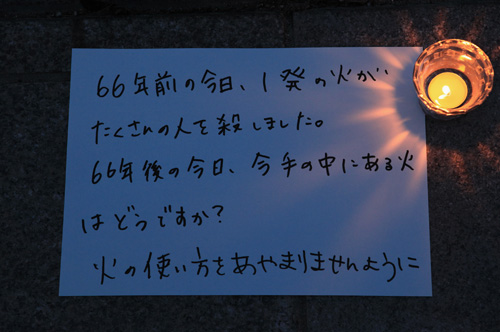 66年前の今日、1発の火が、
たくさんの人を殺しました。
66年後の今日、今手の中にある火
はどうですか?
火の使い方をあやまりませんように